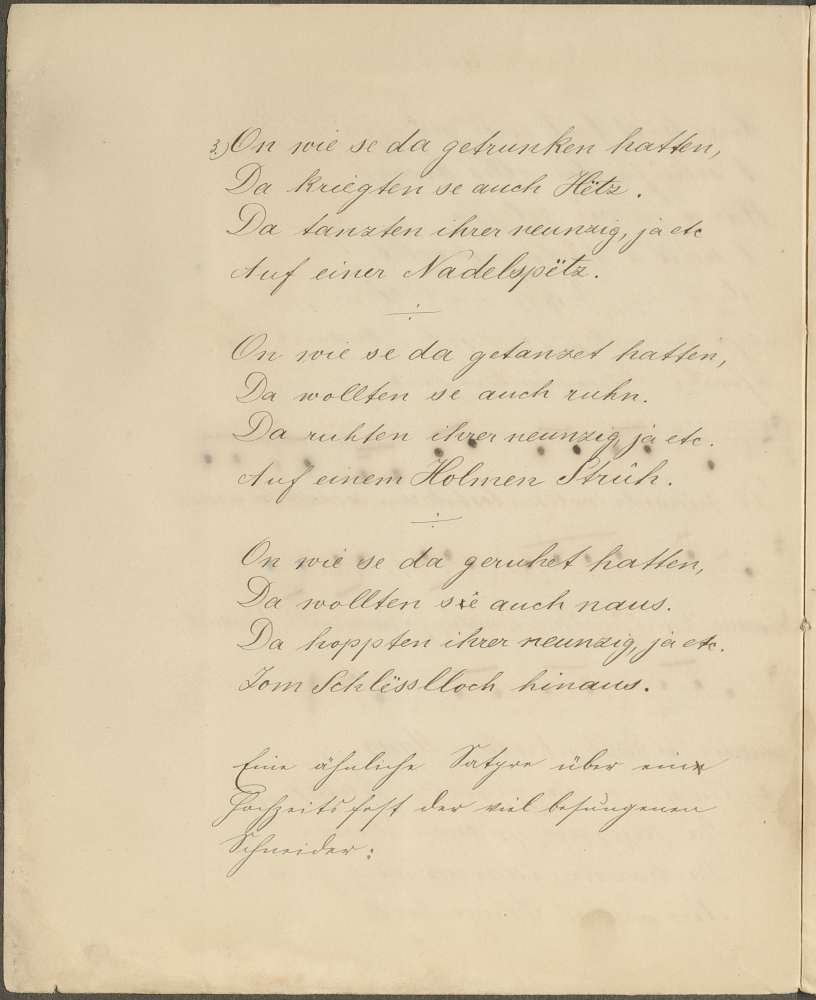 3.) On wie se da getrunken hatten,
Da kriegten se auch Hëtz.
Da tanzten ihrer neunzig, ja etc
Auf einer Nadelspëtz.
On wie se da getanzet hatten,
Da wollten se auch ruhn.
Da ruhten ihrer neunzig, ja etc.
Auf einem Holmen Strûh.
On wie se da geruhet hatten,
Da wollten sê auch naus.
Da hoppten ihrer neunzig, ja etc.
Zom Schlësslloch hinaus.
Eine ähnliche Satyre über ein
Hochzeitsfest der viel besungenen
Schneider: